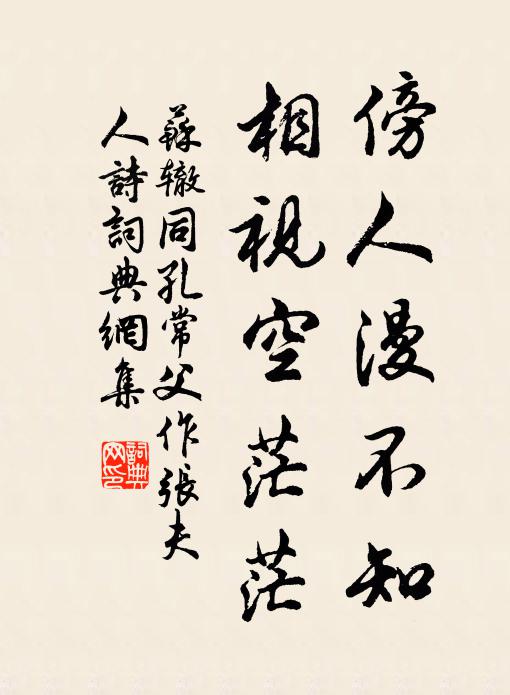 傍人漫不知
相視空茫茫
蘇轍同孔常父作張夫
人詩詞典網集
詞典
网印